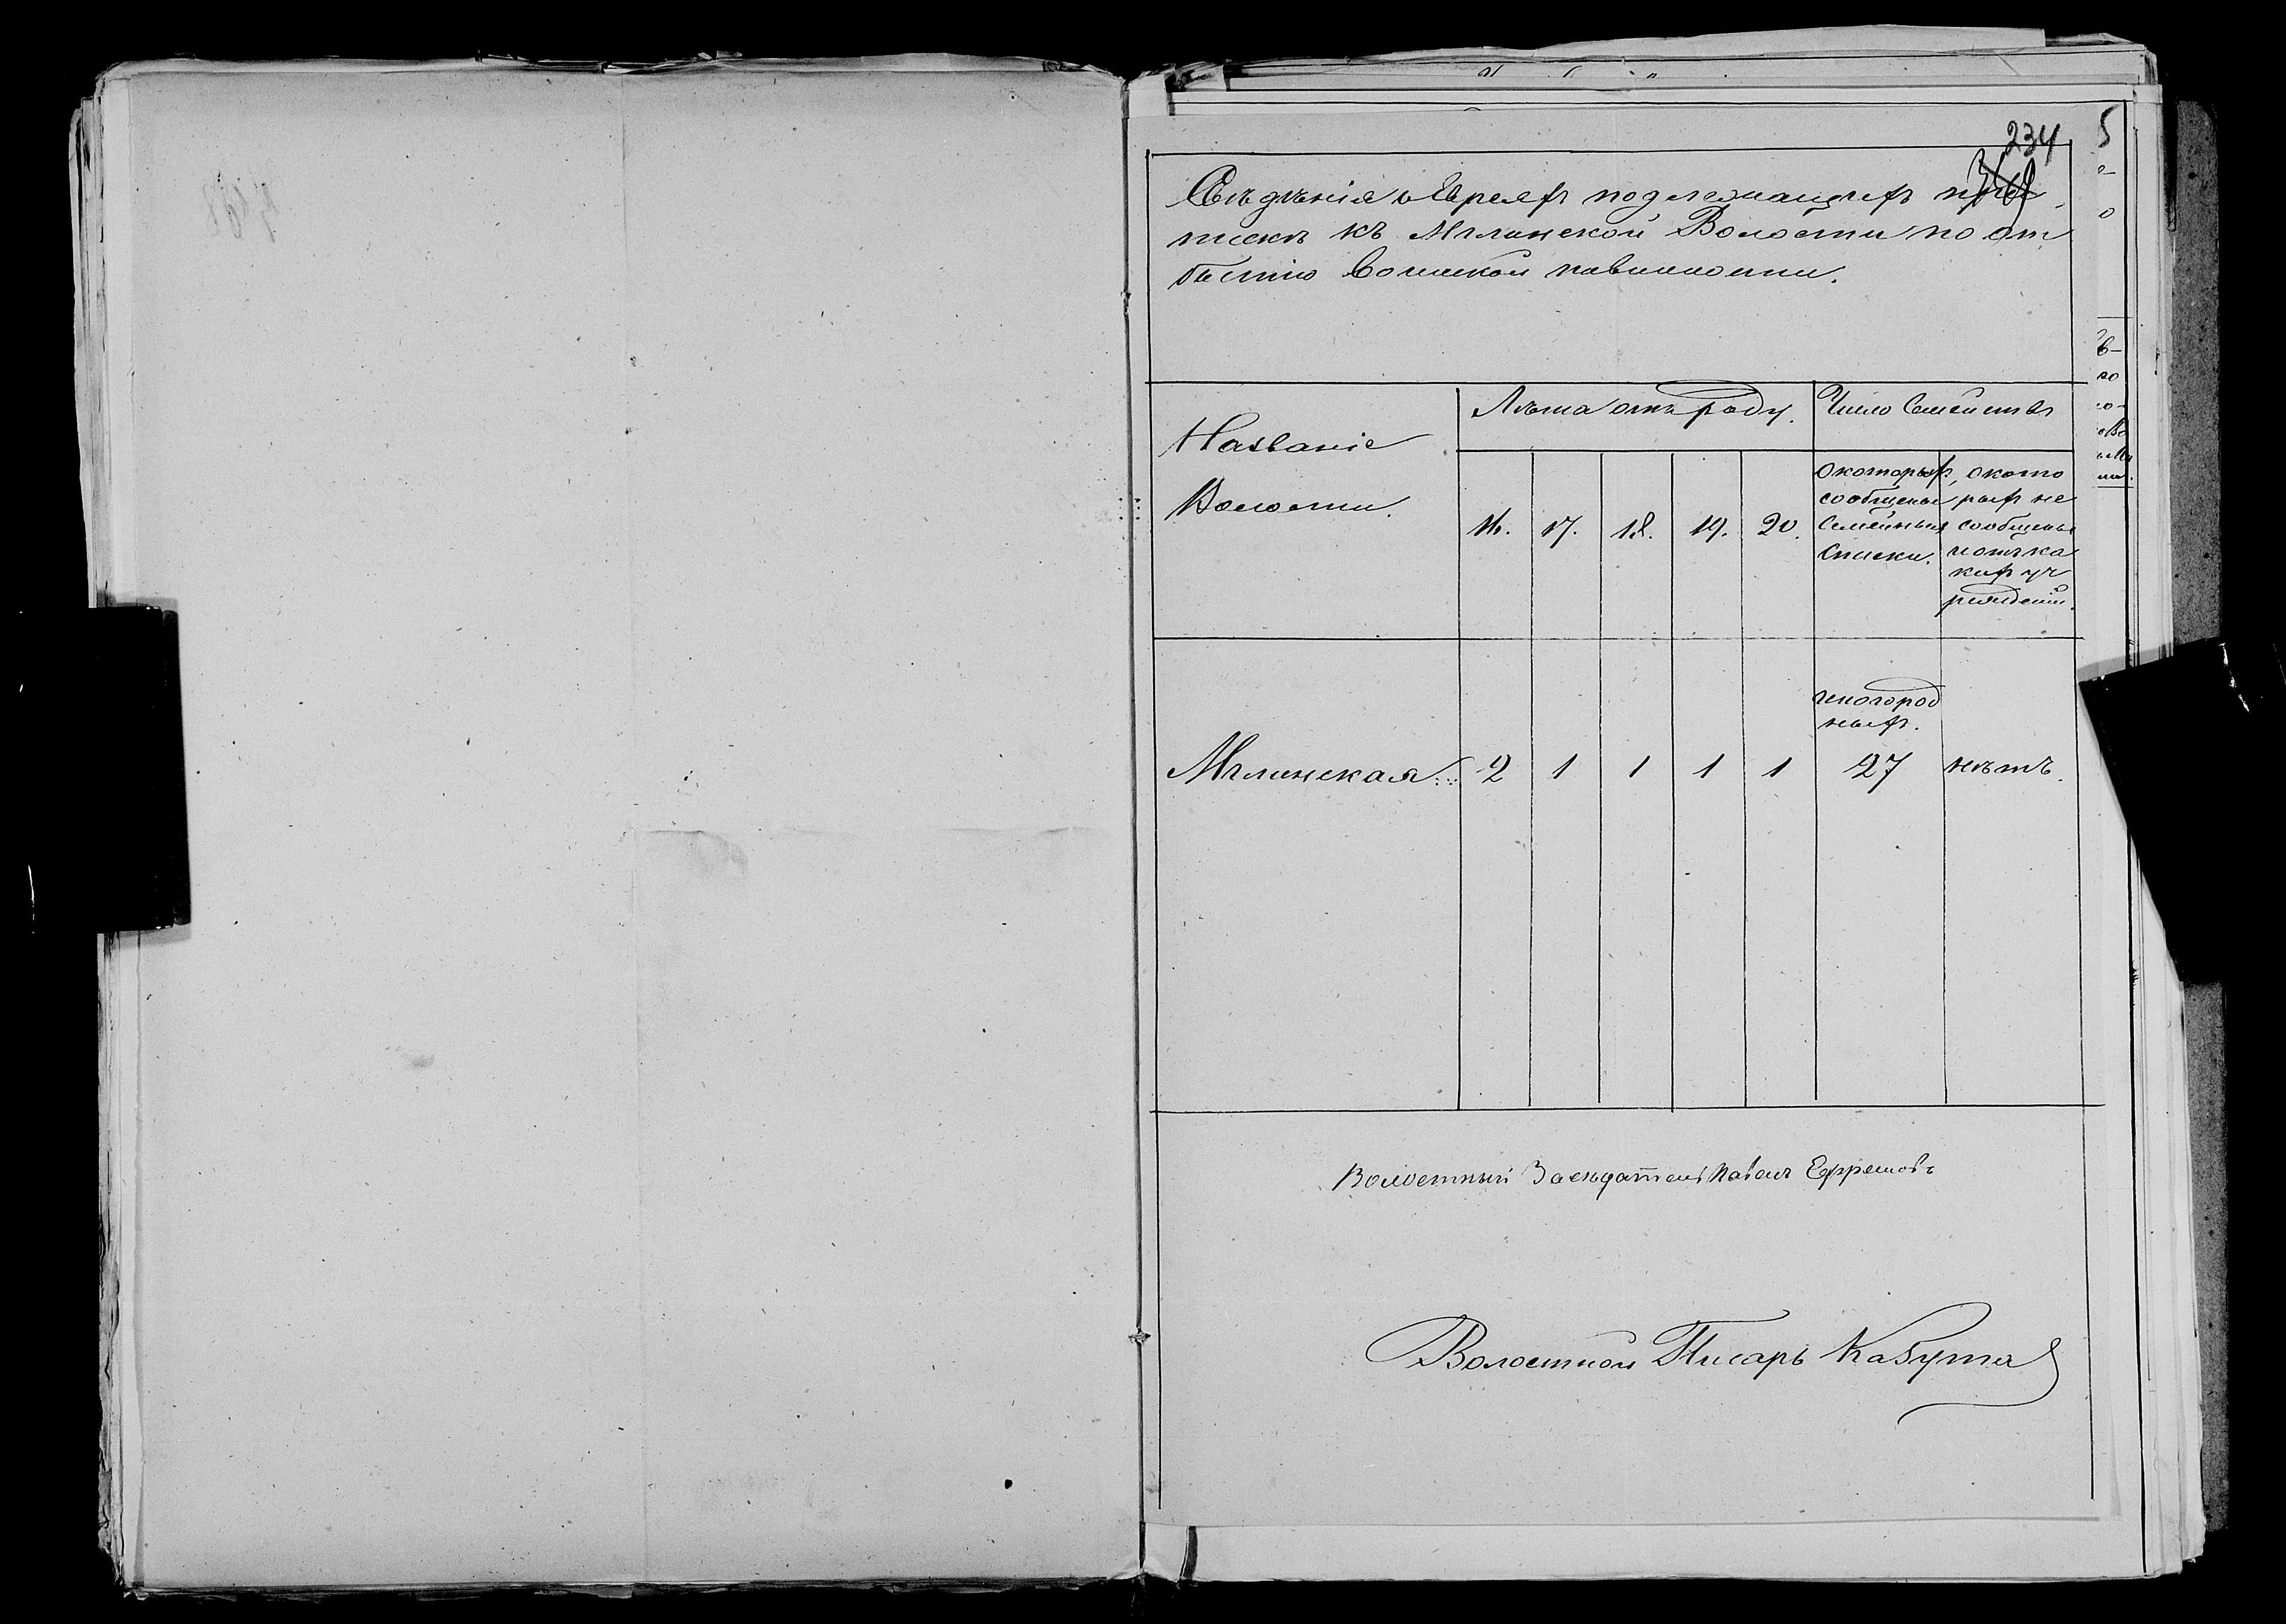 234
Свѣдѣнія о Евреяхъ подлежащихъ при
пискѣ къ Мглинской Волости по от
бытію Воинской повинности.
Названіе
Волости.
Лѣта отъ роду.
Число Семействъ
16. 17. 18. 19. 20.
О которыхъ
сообщены
Семейныя
Списки.
о кото
рыхъ не
сообщены
и отъ ка
кихъ уч
режденій.
иногород
ныхъ.
Мглинская 2 1 1 1 1 27 нѣтъ.
Волостный Засѣдатель Павелъ Ефремовъ
Волостной Писарь Кабута